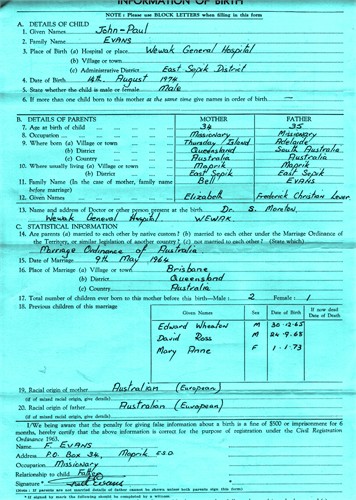 INFORMATION OF BIRTH
NOTE: Please use BLOCK LETTERS when filling in this form
A. DETAILS OF CHILD
1. Given Names John-Paul
2. Family Name EVANS
3. Place of Birth (a) Hospital or place. Wewak General Hospital
(b) Village or town
(c) Administrative District East Sepik District
4. Date of Birth 14th. August 1974
5. State whether the child is male or female Male
6. If more than one child born to this mother at the same time give names in order of birth
B. DETAILS OF PARENTS MOTHER FATHER
7. Age at birth of child 34 35
8. Occupation Missionary Missionary
9. Where born (a) Village or town Thursday Island Adelaide
(b) District Queensland South Australia
(c) Country Australia Australia
10. Where usually living (a) Village or town Maprik Maprik
(b) District East Sepik East Sepik
11. Family Name (In the case of mother, family name before marriage) Bell EVANS
12. Given Names Elizabeth Frederick Christian Lever
13. Name and address of Doctor or other person present at birth Dr. S.
Wewak General Hospital. WEWAK.
C. STATISTICAL INFORMATION
14. Are parents (a) married to each other by native custom? (b) married to each other under the Marriage Ordinance of
the Territory, or similar legislation of another country? (c) not married to each other? (State which)
Marriage Ordinance of Australia
15. Date of Marriage 9th May 1964
16. Place of Marriage (a) Village or town Brisbane
(b) District Queensland
(c) Country Australia
17. Total number of children ever born to this mother before this birth—Male: 2 Female: 1
18. Previous children of this marriage
Given Names Sex Date of Birth If now dead Date of Death
Edward M 30-12-65
David Ross M 24-9-68
Mary Anne F 1-1-73
19. Racial origin of mother Australian (European)
(if of mixed racial origin, give details)
20. Racial origin of father Australian (European)
(if of mixed racial origin, give details)
I/We being aware that the penalty for giving false information about a birth is a fine of $500 or imprisonment for 6
months, hereby certify that the above information is correct for the purpose of registration under the Civil Registration
Ordinance 1963.
Name F. EVANS
Address P.O. Box 34, Maprik E.S.D.
Occupation Missionary
Relationship to child Father
Signature *
(Note: If parents are not married details of father cannot be shown unless both parents sign this form)
* If signed by mark this should be completed by a witness.